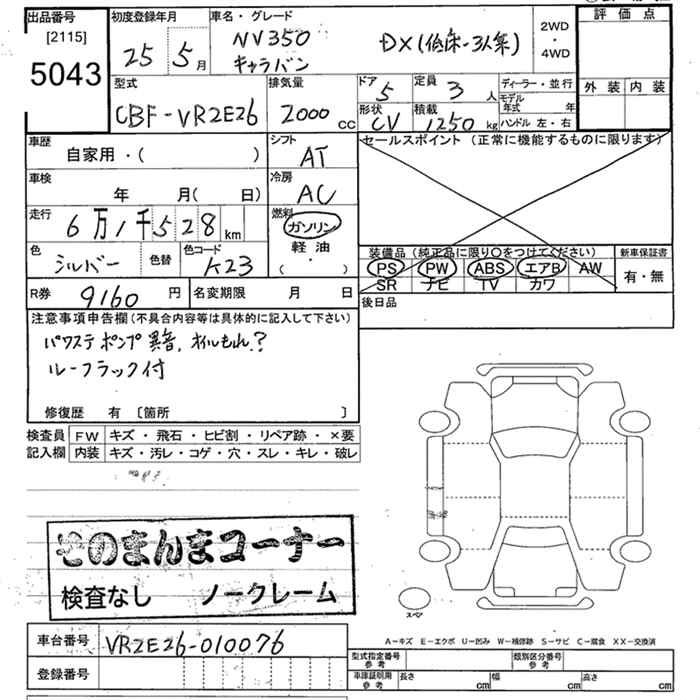 出品番号 初度登録年月 車名・グレード 評価点
[2115]
5043 25 5月 NV350 キャラバン DX(低床-3人乗) 2WD・4WD
型式 排気量 ドア 定員 ディーラー・並行 外装 内装
CBF-VR2E26 2000cc 5 3人 モデル年式 年
形状 積載 ハンドル 左・右
CV 1250kg
車歴 シフト セールスポイント(正常に機能するものに限ります)
自家用・( ) AT
車検 冷房
年 月(日) AC
走行 燃料
6万1千528km ガソリン
軽油
・( )
色 色替 色コード 装備品(純正品に限り○をつけてください) 新車保証書
シルバー K23 PS PW ABS エアB AW 有・無
SR ナビ TV カワ
R券 9160円 名変期限 月 日 後日品
注意事項申告欄(不具合内容等は具体的に記入して下さい)
パワステポンプ異音,オイルもれ?
ルーフラック付
修復歴 有 〔箇所 〕
検査員 FW キズ・飛石・ヒビ割・リペア跡・×要
記入欄 内装 キズ・汚レ・コゲ・穴・スレ・キレ・破レ
そのまんまコーナー
検査なし ノークレーム
スペア
A-キズ E-エクボ U-凹み W-補修跡 S-サビ C-腐食 XX-交換済
車台番号 VR2E26-010076
型式指定番号 参考 類別区分番号 参考
登録番号 車庫証明用 参考 長さ cm 幅 cm 高さ cm